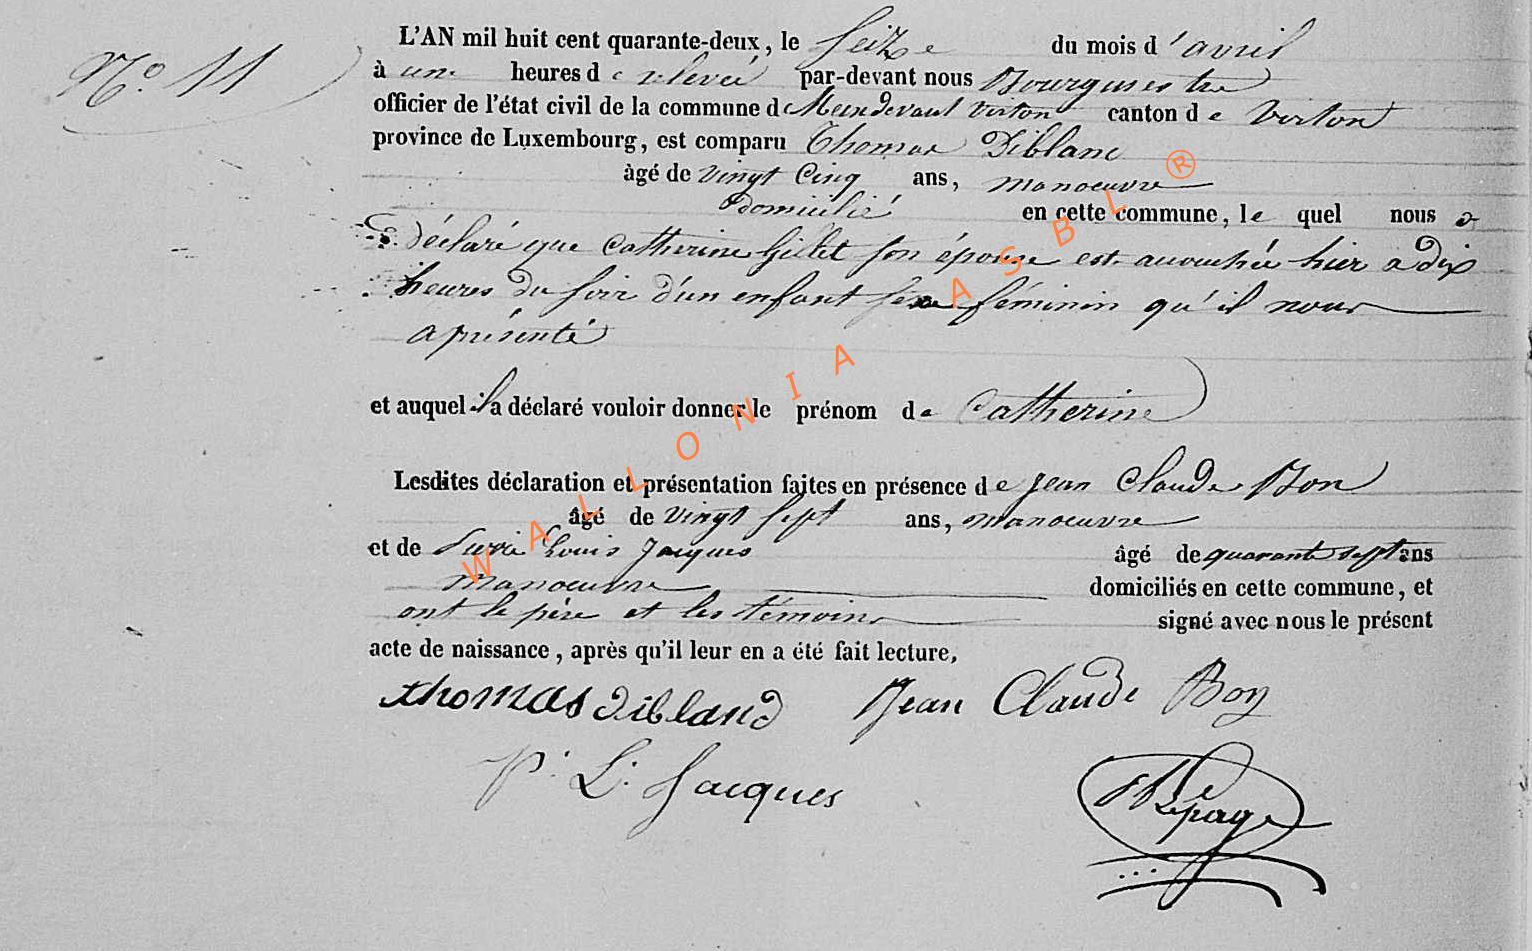 N.° 11
L'AN mil huit cent quarante-deux, le Seize du mois d'avril
à une heures de relevée par-devant nous Bourguestre
officier de l'état civil de la commune de Meix devant Virton canton de Virton
province de Luxembourg, est comparu Thomas Diblanc
âgé de vingt cinq ans, manoeuvre
domicilié en cette commune, le quel nous a
déclaré que Catherine Gillet son épouse est accouchée hier à dix
heures du soir d'un enfant sexe féminin qu'il nous
a présenté
et auquel il a déclaré vouloir donner le prénom de Catherine
Lesdites déclaration et présentation faites en présence de Jean Claude Bon
âgé de vingt sept ans, manoeuvre
et de Louis Jacques âgé de quarante sept ans
manoeuvre domiciliés en cette commune, et
ont le père et les témoins signé avec nous le présent
acte de naissance, après qu'il leur en a été fait lecture,
thomas dibland Jean Claude Bon
P. L. Jacques Lepage
WALLONIA ASBL ®